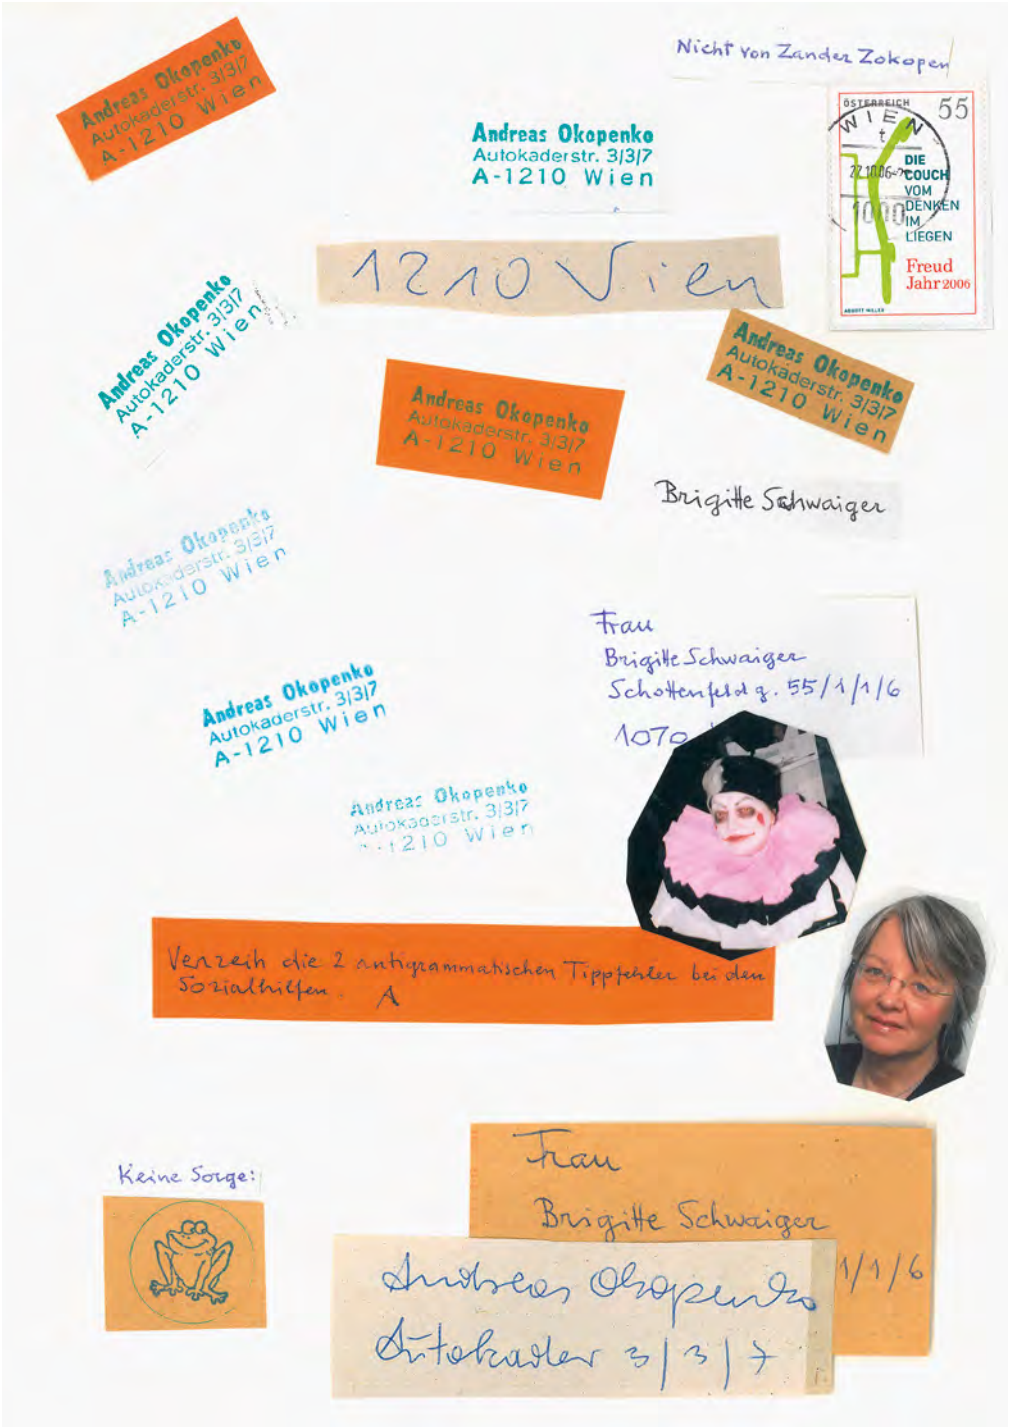 Andreas Okopenko
Autokaderstr. 3/3/7
A-1210 Wien
Nicht von Zander Zokopen
Andreas Okopenko
Autokaderstr. 3/3/7
A-1210 Wien
ÖSTERREICH 55
WIEN
t
27.10.06
1000
DIE
COUCH
VOM
DENKEN
IM
LIEGEN
Freud
Jahr 2006
ABBOTT MILLER
1210 Wien
Andreas Okopenko
Autokaderstr. 3/3/7
A-1210 Wien
Andreas Okopenko
Autokaderstr. 3/3/7
A-1210 Wien
Andreas Okopenko
Autokaderstr. 3/3/7
A-1210 Wien
Brigitte Schwaiger
Andreas Okopenko
Autokaderstr. 3/3/7
A-1210 Wien
Frau
Brigitte Schwaiger
Schottenfeldg. 55/1/1/6
1070
Andreas Okopenko
Autokaderstr. 3/3/7
A-1210 Wien
Andreas Okopenko
Autokaderstr. 3/3/7
A-1210 Wien
Verzeih die 2 antigrammatischen Tippfehler bei den
Sozialhilfen. A
Keine Sorge:
Frau
Brigitte Schwaiger
1/1/6
Andreas Okopenko
Autokader 3/3/7